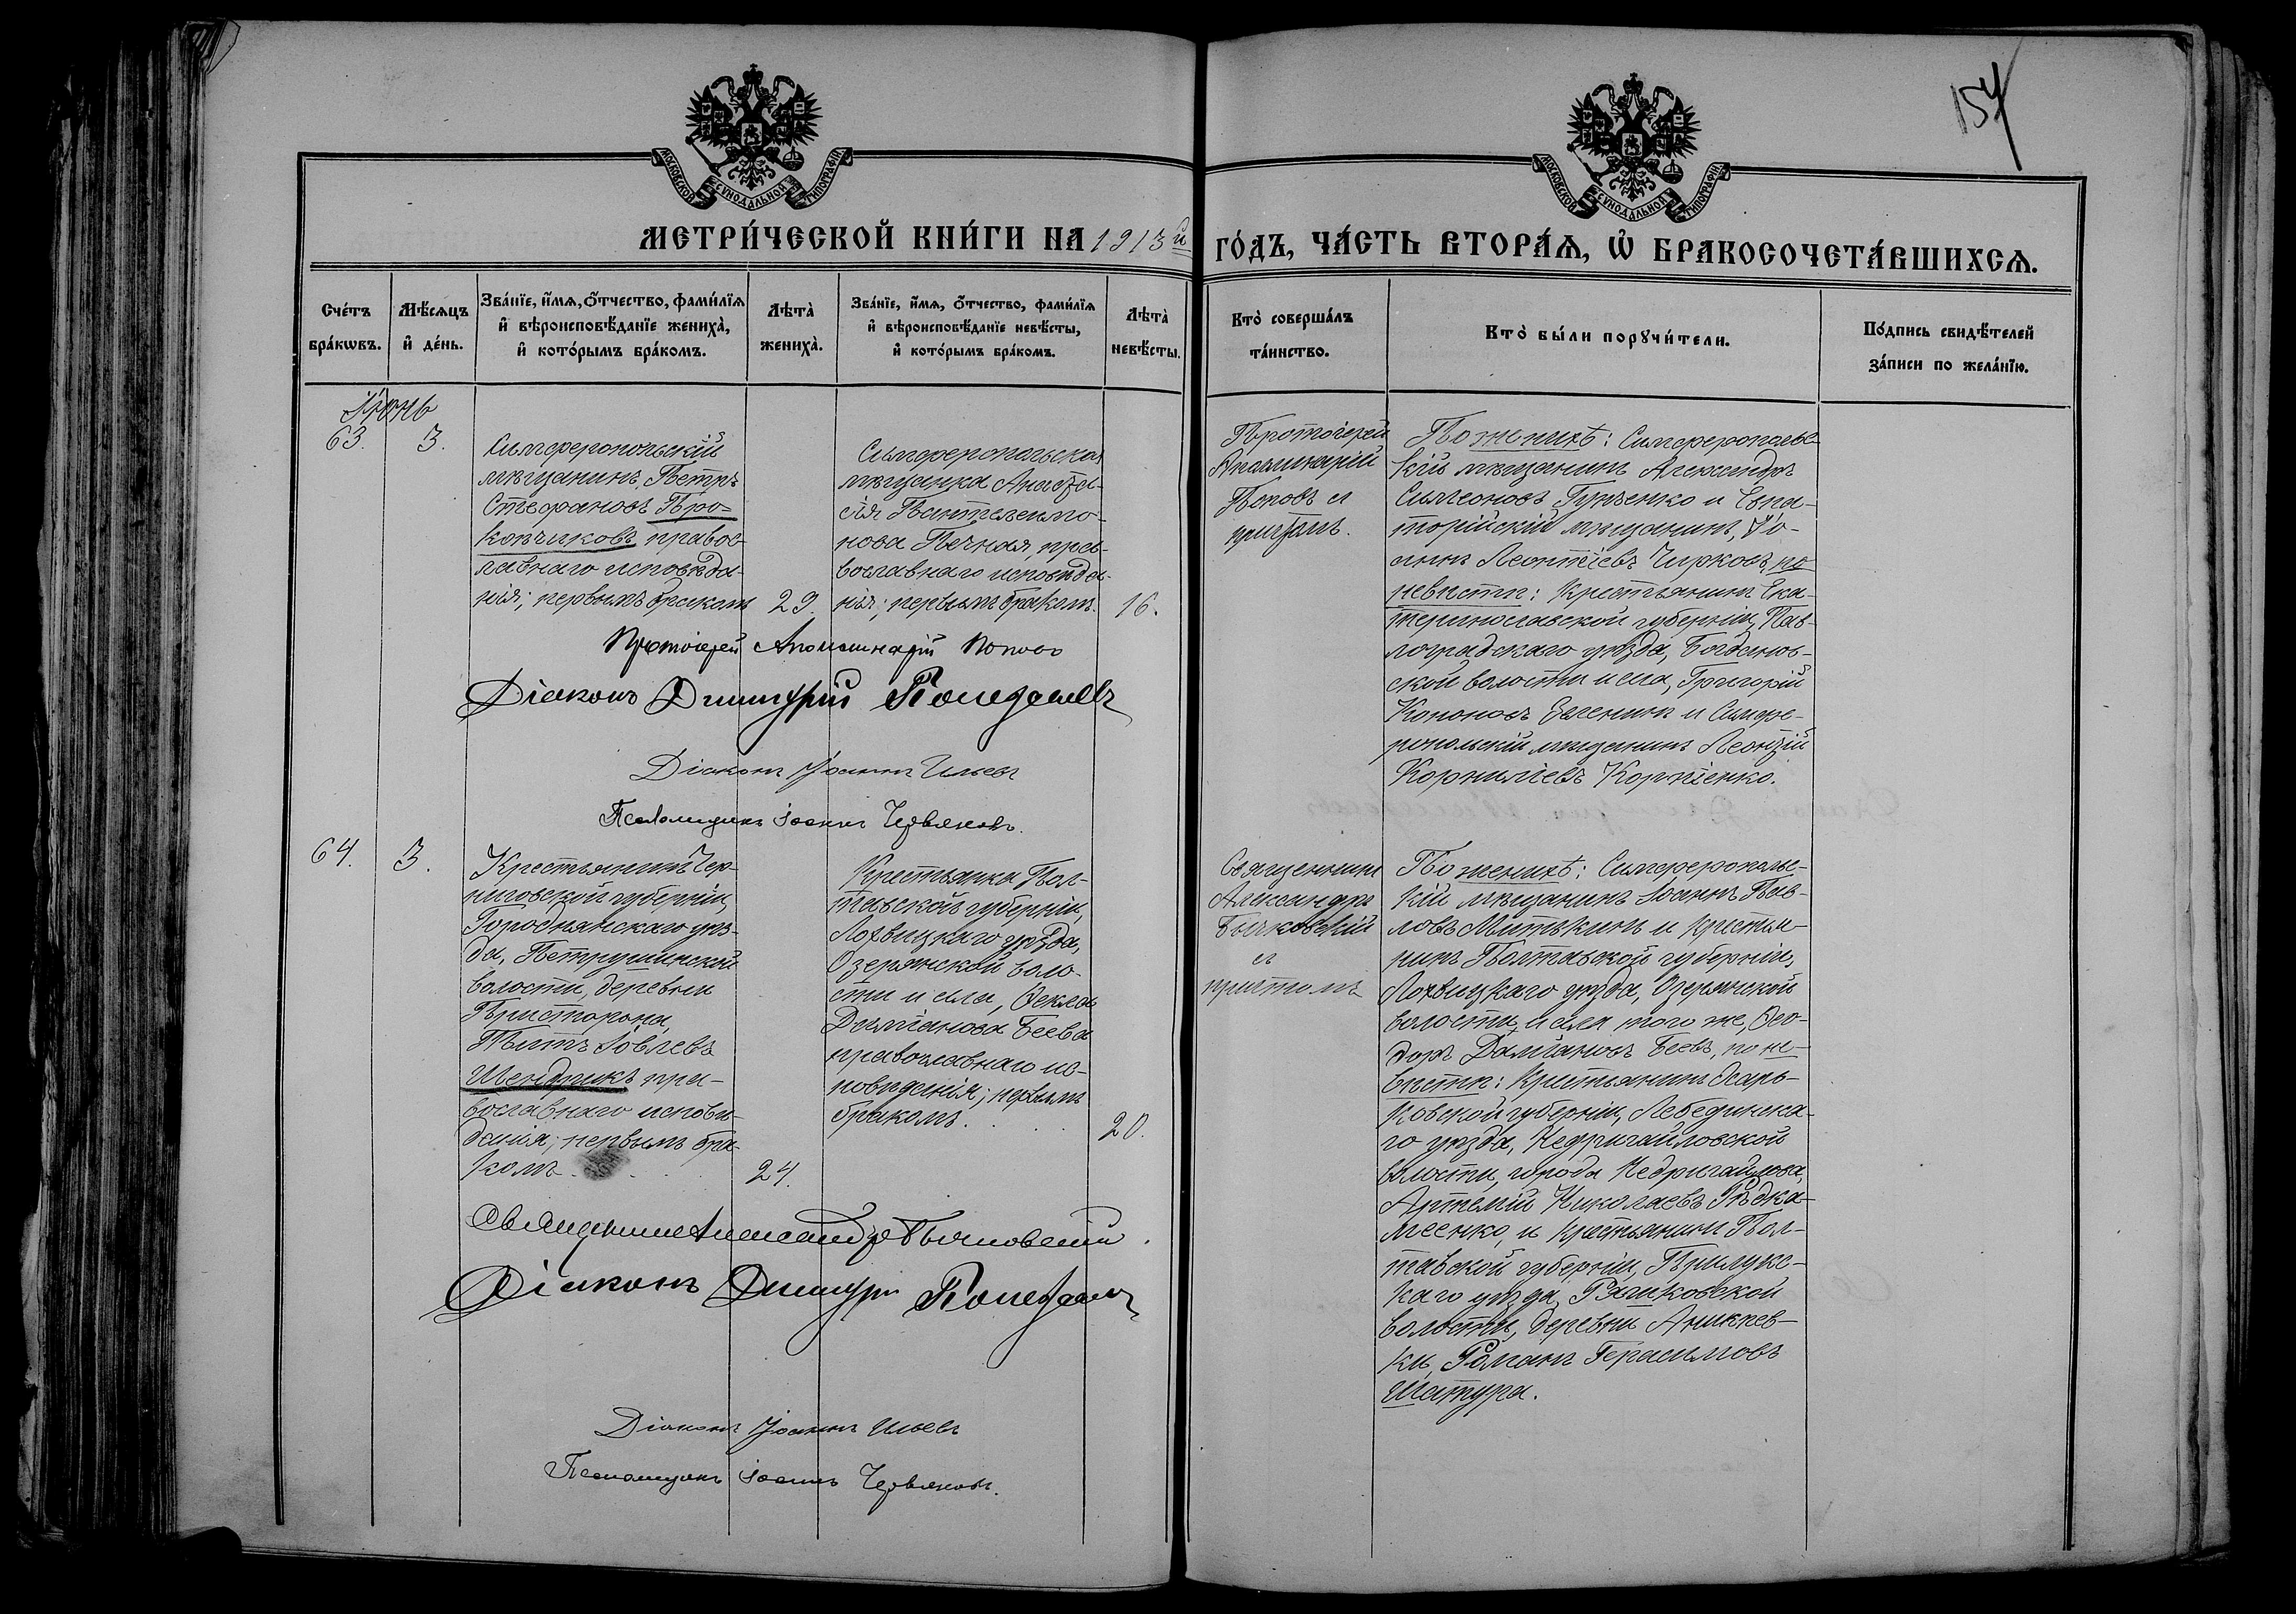 154
МОСКОВСКОЙ СѴНОДАЛЬНОЙ ТИПОГРАФІИ
МОСКОВСКОЙ СѴНОДАЛЬНОЙ ТИПОГРАФІИ
МЕТРИ́ЧЕСКОЙ КНИ́ГИ НА 1913й
ГО́ДЪ, ЧА́СТЬ ВТОРА́Ѧ, Ѡ҆ БРАКОСОЧЕТА́ВШИХСѦ.
Сче́тъ
бра́кѡвъ.
Мѣ́сѧцъ
и҆ де́нь.
Зва́нїе, и҆́мѧ, ѻ҆́тчество, фами́лїѧ
и҆ вѣроисповѣ́данїе жениха̀,
и҆ кото́рымъ бра́комъ.
Лѣта̀
жениха̀.
Зва́нїе, и҆́мѧ, ѻ҆́тчество, фами́лїѧ
и҆ вѣроисповѣ́данїе невѣ́сты,
и҆ кото́рымъ бра́комъ.
Лѣта̀
невѣ́сты.
Кто̀ соверша́лъ
та́инство.
Кто̀ бы́ли порꙋчи́тели.
По́дпись свидѣ́телей
за́писи по жела́нїю.
Іюнь
63.
3.
Симферопольскій
мѣщанинъ, Петръ
Стефановъ Про-
копчиковъ правос-
лавнаго исповѣда-
нія; первымъ бракомъ
29.
Симферопольская
мѣщанка Анаста-
сія Пантелеимо-
нова Печная, пра-
вославнаго исповѣда-
нія; первымъ бракомъ.
16.
Протоіерей
Аполинарій
Поповъ съ
причтомъ.
По женихѣ: Симферопольс-
кій мѣщанинъ Александръ
Симеоновъ Гунченко и Евпа-
торійскій мѣщанинъ, Іо-
аннъ Леонтіевъ Чирковъ, по
невѣстѣ: Крестьянинъ Ека-
теринославской губерніи, Пав-
лоградскаго уѣзда, Богданов-
ской волости и села, Григорій
Кононовъ Зеленинъ и Симфе-
ропольскій мѣщанинъ Леонтій
Корниліевъ Корніенко.
Протоіерей Аполлинарій Поповъ
Діаконъ Димитрій
Діаконъ Іоаннъ Ильевъ
Псаломщикъ Іоаннъ Червяковъ.
64.
3.
Крестьянинъ Чер-
ниговской губерніи,
Городнянскаго уѣз-
да, Петрушинской
волости, деревни
Пристороня,
Титъ Іовлевъ
Шендрикъ пра-
вославнаго исповѣ-
данія; первымъ бра-
комъ.
24.
Крестьянка Пол-
тавской губерніи,
Лохвицкаго уѣзда,
Озерянской воло-
сти и села, Ѳекла
Даміанова Беева
православнаго ис-
повѣданія; первымъ
бракомъ.
20.
Священникъ
Александръ
Бычковскій
съ
причтомъ
По женихѣ: Симферопольс-
кій мѣщанинъ Іоаннъ Пав-
ловъ Митькинъ и крестья-
нинъ Полтавской губерніи,
Лохвицкаго уѣзда, Озерянской
волости и села того же, Ѳео-
доръ Даміановъ Беевъ, по не-
вѣстѣ: Крестьянинъ Харь-
ковской губерніи, Лебединска-
го уѣзда, Недригайловской
волости, города Недригайлова,
Артемій Николаевъ Рѣдка-
шеенко, и крестьянинъ Пол-
тавской губерніи, Прилукс-
каго уѣзда, Рѧшковской
волости, деревни Аникеев-
ки, Романъ Герасимовъ
Шатура.
Священникъ Александръ Бычковскій
Діаконъ Димитрій
Діаконъ Іоаннъ Ильевъ
Псаломщикъ Іоаннъ Червяковъ.